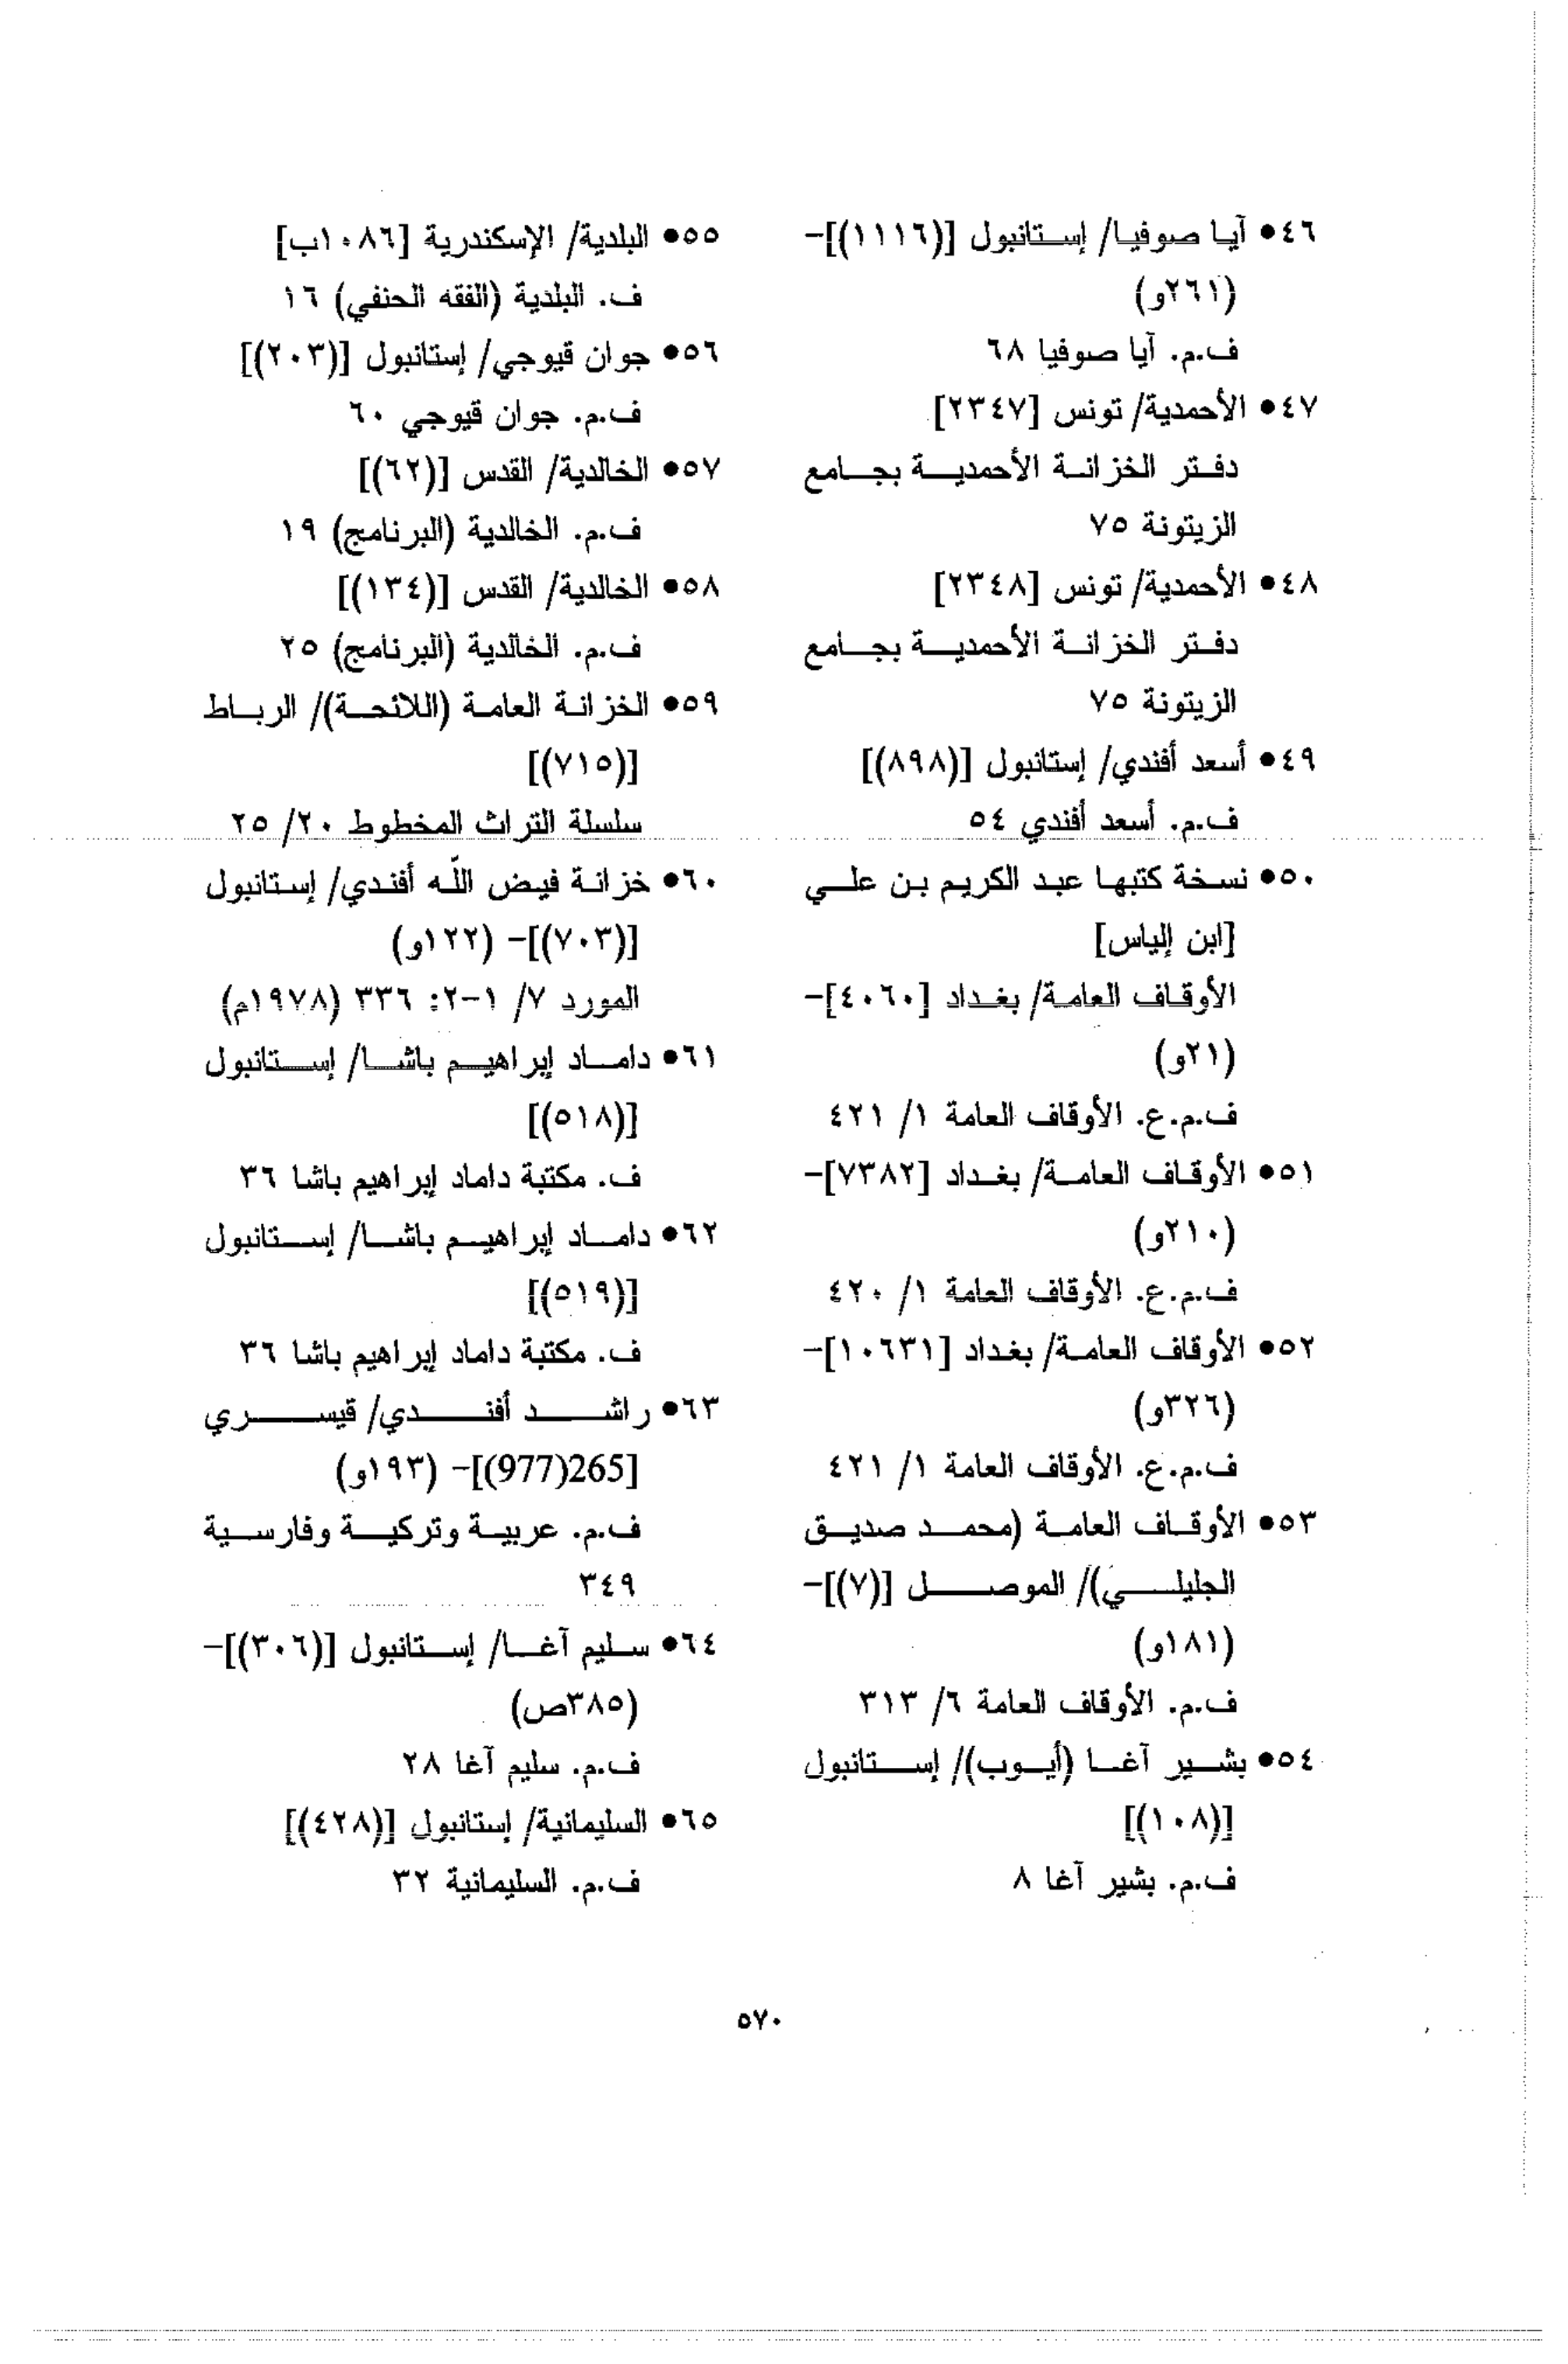 ٤٦● آيا صوفيا/ إستانبول [(١١١٦)]-
(٢٦١و)
ف.م. آيا صوفيا ٦٨
٤٧● الأحمدية/ تونس [٢٣٤٧]
دفتر الخزانة الأحمدية بجامع
الزيتونة ٧٥
٤٨● الأحمدية/ تونس [٢٣٤٨]
دفتر الخزانة الأحمدية بجامع
الزيتونة ٧٥
٤٩● أسعد أفندي/ إستانبول [(٨٩٨)]
ف.م. أسعد أفندي ٥٤
٥٠● نسخة كتبها عبد الكريم بن علي
[ابن إلياس]
الأوقاف العامة/ بغداد [٤٠٦٠]-
(٢١و)
ف.م.ع. الأوقاف العامة ١/ ٤٢١
٥١● الأوقاف العامة/ بغداد [٧٣٨٢]-
(٢١٠و)
ف.م.ع. الأوقاف العامة ١/ ٤٢٠
٥٢● الأوقاف العامة/ بغداد [١٠٦٣١]-
(٣٢٦و)
ف.م.ع. الأوقاف العامة ١/ ٤٢١
٥٣● الأوقاف العامة (محمد صديق
الجليلي)/ الموصل [(٧)]-
(١٨١و)
ف.م. الأوقاف العامة ٦/ ٣١٣
٥٤● بشير آغا (أيوب)/ إستانبول
[(١٠٨)]
ف.م. بشير آغا ٨
٥٥● البلدية/ الإسكندرية [١٠٨٦ب]
ف. البلدية (الفقه الحنفي) ١٦
٥٦● جوان قيوجي/ إستانبول [(٢٠٣)]
ف.م. جوان قيوجي ٦٠
٥٧● الخالدية/ القدس [(٦٢)]
ف.م. الخالدية (البرنامج) ١٩
٥٨● الخالدية/ القدس [(١٣٤)]
ف.م. الخالدية (البرنامج) ٢٥
٥٩● الخزانة العامة (اللائحة)/ الرباط
[(٧١٥)]
سلسلة التراث المخطوط ٢٠/ ٢٥
٦٠● خزانة فيض اللّه أفندي/ إستانبول
[(٧٠٣)]- (١٢٢و)
المورد ٧/ ١-٢: ٣٣٦ (١٩٧٨م)
٦١● داماد إبراهيم باشا/ إستانبول
[(٥١٨)]
ف. مكتبة داماد إبراهيم باشا ٣٦
٦٢● داماد إبراهيم باشا/ إستانبول
[(٥١٩)]
ف. مكتبة داماد إبراهيم باشا ٣٦
٦٣● راشد أفندي/ قيسري
[265(977)]- (١٩٣و)
ف.م. عربية وتركية وفارسية
٣٤٩
٦٤● سليم آغا/ إستانبول [(٣٠٦)]-
(٣٨٥ص)
ف.م. سليم آغا ٢٨
٦٥● السليمانية/ إستانبول [(٤٢٨)]
ف.م. السليمانية ٣٢
٥٧٠